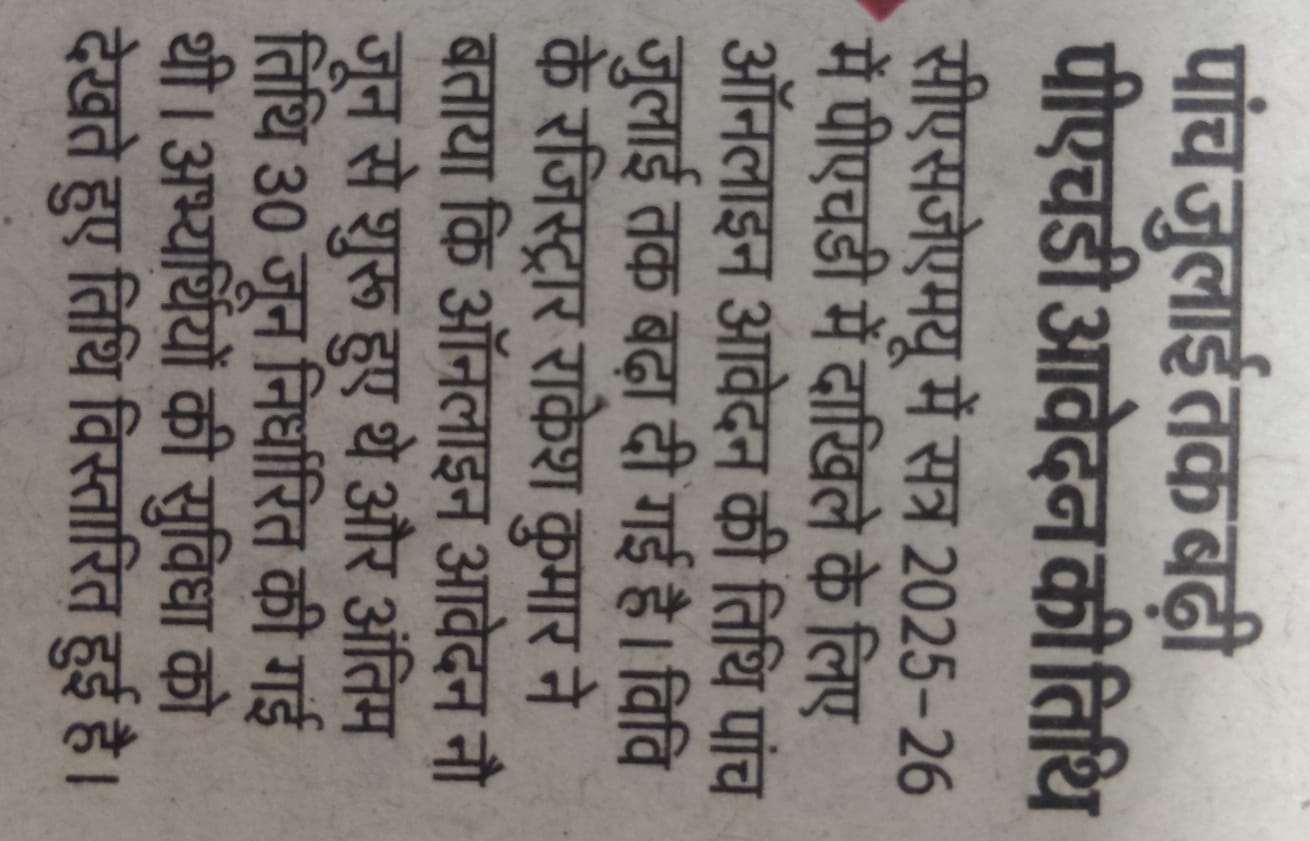 पांच जुलाई तक बढ़ी
पीएचडी आवेदन की तिथि
सीएसजेएमयू में सत्र 2025-26
में पीएचडी में दाखिले के लिए
ऑनलाइन आवेदन की तिथि पांच
जुलाई तक बढ़ा दी गई है। विवि
के रजिस्ट्रार राकेश कुमार ने
बताया कि ऑनलाइन आवेदन नौ
जून से शुरू हुए थे और अंतिम
तिथि 30 जून निर्धारित की गई
थी। अभ्यर्थियों की सुविधा को
देखते हुए तिथि विस्तारित हुई है।